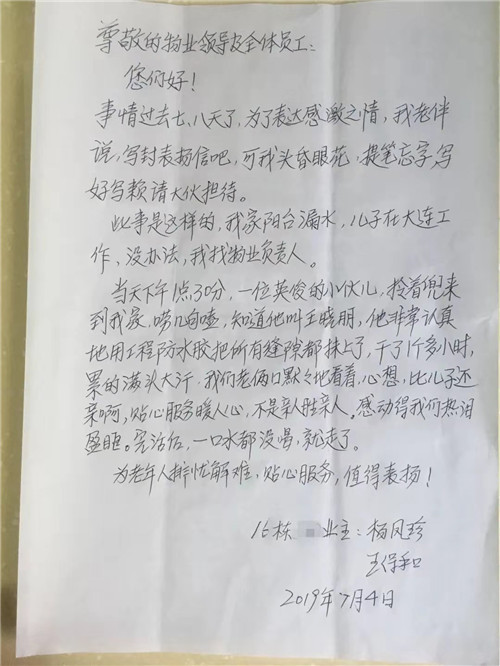 尊敬的物业领导及全体员工:
您们好!
事情过去七、八天了,为了表达感激之情,我老伴
说,写封表扬信吧,可我头昏眼花,提笔忘字,写
好写赖请大伙担待。
此事是这样的,我家阳台漏水,儿子在大连工
作、没办法,我找物业负责人。
当天下午1点30分,一位英俊的小伙儿,拎着兜来
到我家,唠几句嗑,知道他叫王晓朋,他非常认真
地用工程防水胶把所有缝隙都抹上了,干了1个多小时,
累的满头大汗,我们老俩口默々地看着,心想,比儿子还
亲啊,贴心服务暖人心,不是亲人胜亲人。感动得我们热泪
盈眶。完活后,一口水都没喝,就走了。
为老年人排忧解难,贴心服务,值得表扬!
栋 业主:杨凤珍
王保和
2019年7月4日